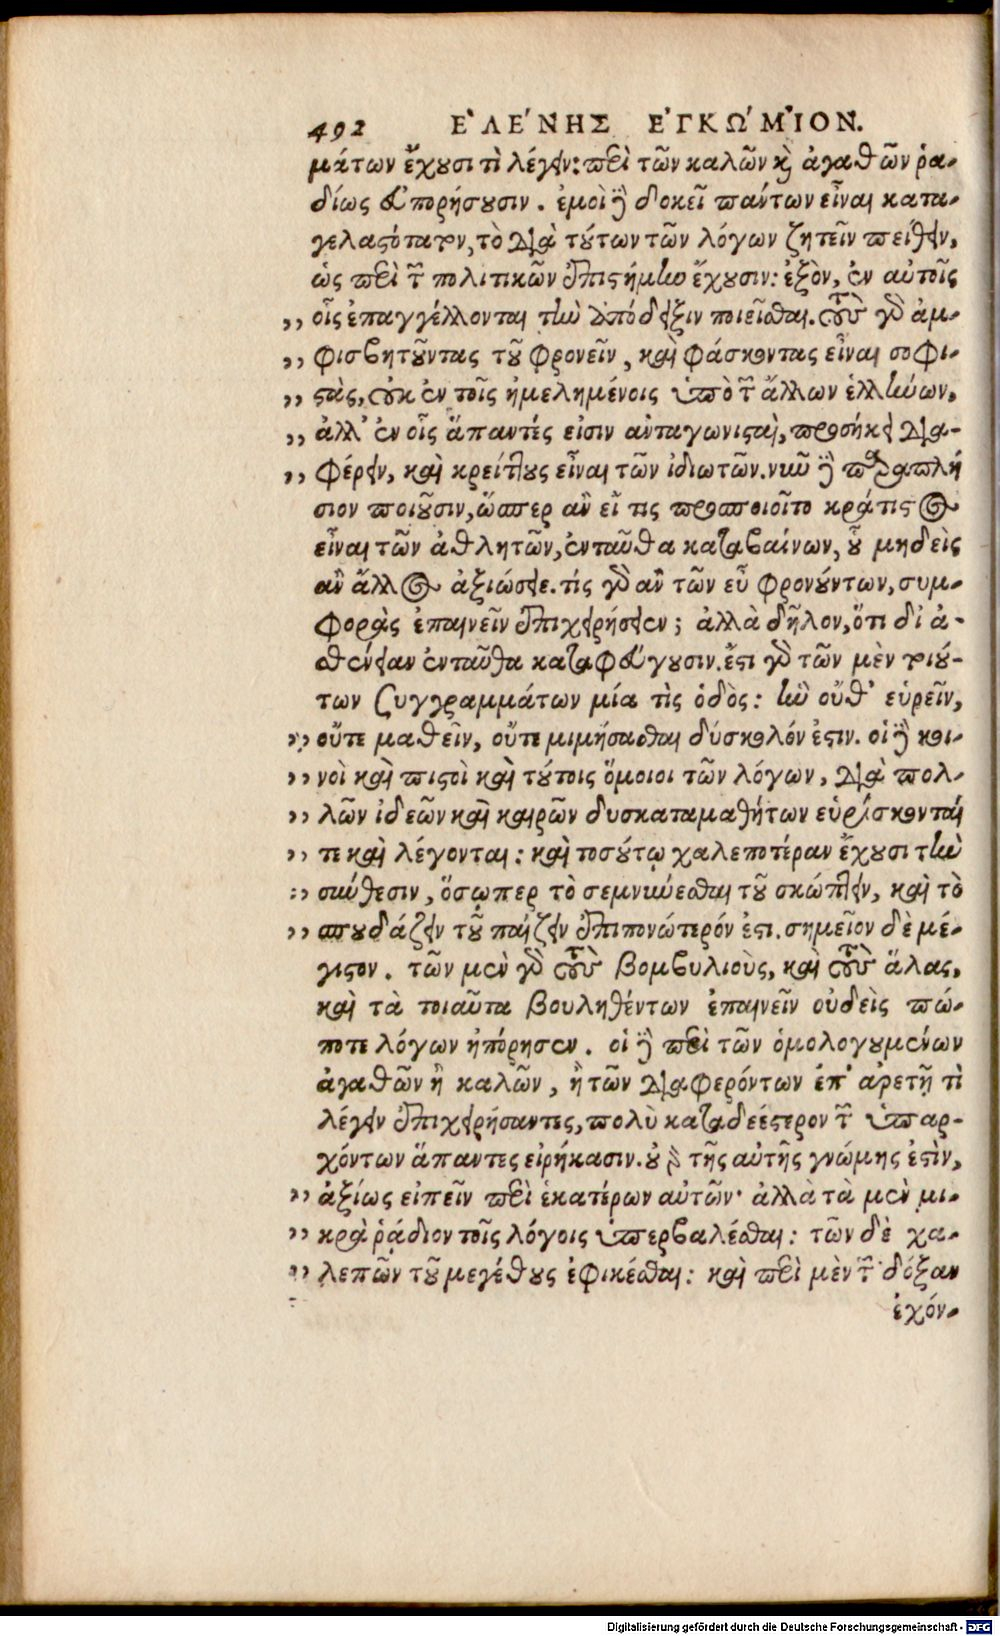 492 ΕʹΛΕʹΝΗΣ ΕʹΓΚΩʹΜΙΟΝ.
μάτων ἔχουσι τὶ λέγειν: περὶ τῶν καλῶν καὶ ἀγαθῶν ῥα-
δίως εὐπορήσουσιν. ἐμοὶ δὲ δοκεῖ πάντων εἶναι κατα-
γελαστότατον, τὸ διὰ τούτων τῶν λόγων ζητεῖν πείθειν,
ὡς περὶ τῶν πολιτικῶν ἐπιστήμην ἔχουσιν: ἐξὸν, ἐν αὐτοῖς
,, οἷς ἐπαγγέλλονται τὴν ἀπόδειξιν ποιεῖσθαι. τοὺς γὰρ ἀμ-
,, φισβητοῦντας τοῦ φρονεῖν, καὶ φάσκοντας εἶναι σοφι-
,, στὰς, οὐκ ἐν τοῖς ἠμελημένοις ὑπὸ τῶν ἄλλων ἑλλήνων,
,, ἀλλ' ἐν οἷς ἅπαντές εἰσιν ἀνταγωνισταὶ, προσήκει δια-
,, φέρειν, καὶ κρείττους εἶναι τῶν ἰδιωτῶν. νῦν δὲ παραπλή
σιον ποιοῦσιν, ὥσπερ ἂν εἴ τις προσποιοῖτο κράτιστος
εἶναι τῶν ἀθλητῶν, ἐνταῦθα καταβαίνων, οὗ μηδεὶς
ἂν ἄλλος ἀξιώσειε. τίς γὰρ ἂν τῶν εὖ φρονούντων, συμ-
φορὰς ἐπαινεῖν ἐπιχειρήσειεν; ἀλλὰ δῆλον, ὅτι δι' ἀ-
σθένειαν ἐνταῦθα καταφεύγουσιν. ἔστι γὰρ τῶν μὲν τοιού-
των ξυγγραμμάτων μία τὶς ὁδὸς: ἣν οὔθ' εὑρεῖν,
,, οὔτε μαθεῖν, οὔτε μιμήσασθαι δύσκολόν ἐστιν. οἱ δὲ κοι-
,, νοὶ καὶ πιστοὶ καὶ τούτοις ὅμοιοι τῶν λόγων, διὰ πολ-
,, λῶν ἰδεῶν καὶ καιρῶν δυσκαταμαθήτων εὑρίσκονταί
,, τε καὶ λέγονται: καὶ τοσούτῳ χαλεποτέραν ἔχουσι τὴν
,, σύνθεσιν, ὅσῳπερ τὸ σεμνύνεσθαι τοῦ σκώπτειν, καὶ τὸ
,, σπουδάζειν τοῦ παίζειν ἐπιπονώτερόν ἐστι. σημεῖον δὲ μέ-
γιστον. τῶν μὲν γὰρ τοὺς βομβυλιοὺς, καὶ τοὺς ἅλας,
καὶ τὰ τοιαῦτα βουληθέντων ἐπαινεῖν οὐδεὶς πώ-
ποτε λόγων ἠπόρησεν. οἱ δὲ περὶ τῶν ὁμολογουμένων
ἀγαθῶν ἢ καλῶν, ἢ τῶν διαφερόντων ἐπ' ἀρετῇ τὶ
λέγειν ἐπιχειρήσαντες, πολὺ καταδεέστερον τῶν ὑπαρ-
χόντων ἅπαντες εἰρήκασιν. οὐ γὰρ τῆς αὐτῆς γνώμης ἐστὶν,
,, ἀξίως εἰπεῖν περὶ ἑκατέρων αὐτῶν· ἀλλὰ τὰ μὲν μι-
,, κρὰ ῥᾴδιον τοῖς λόγοις ὑπερβαλέσθαι: τῶν δὲ χα-
,, λεπῶν τοῦ μεγέθους ἐφικέσθαι: καὶ περὶ μὲν τῶν δόξαν
ἐχόν-
Digitalisierung gefördert durch die Deutsche Forschungsgemeinschaft - DFG